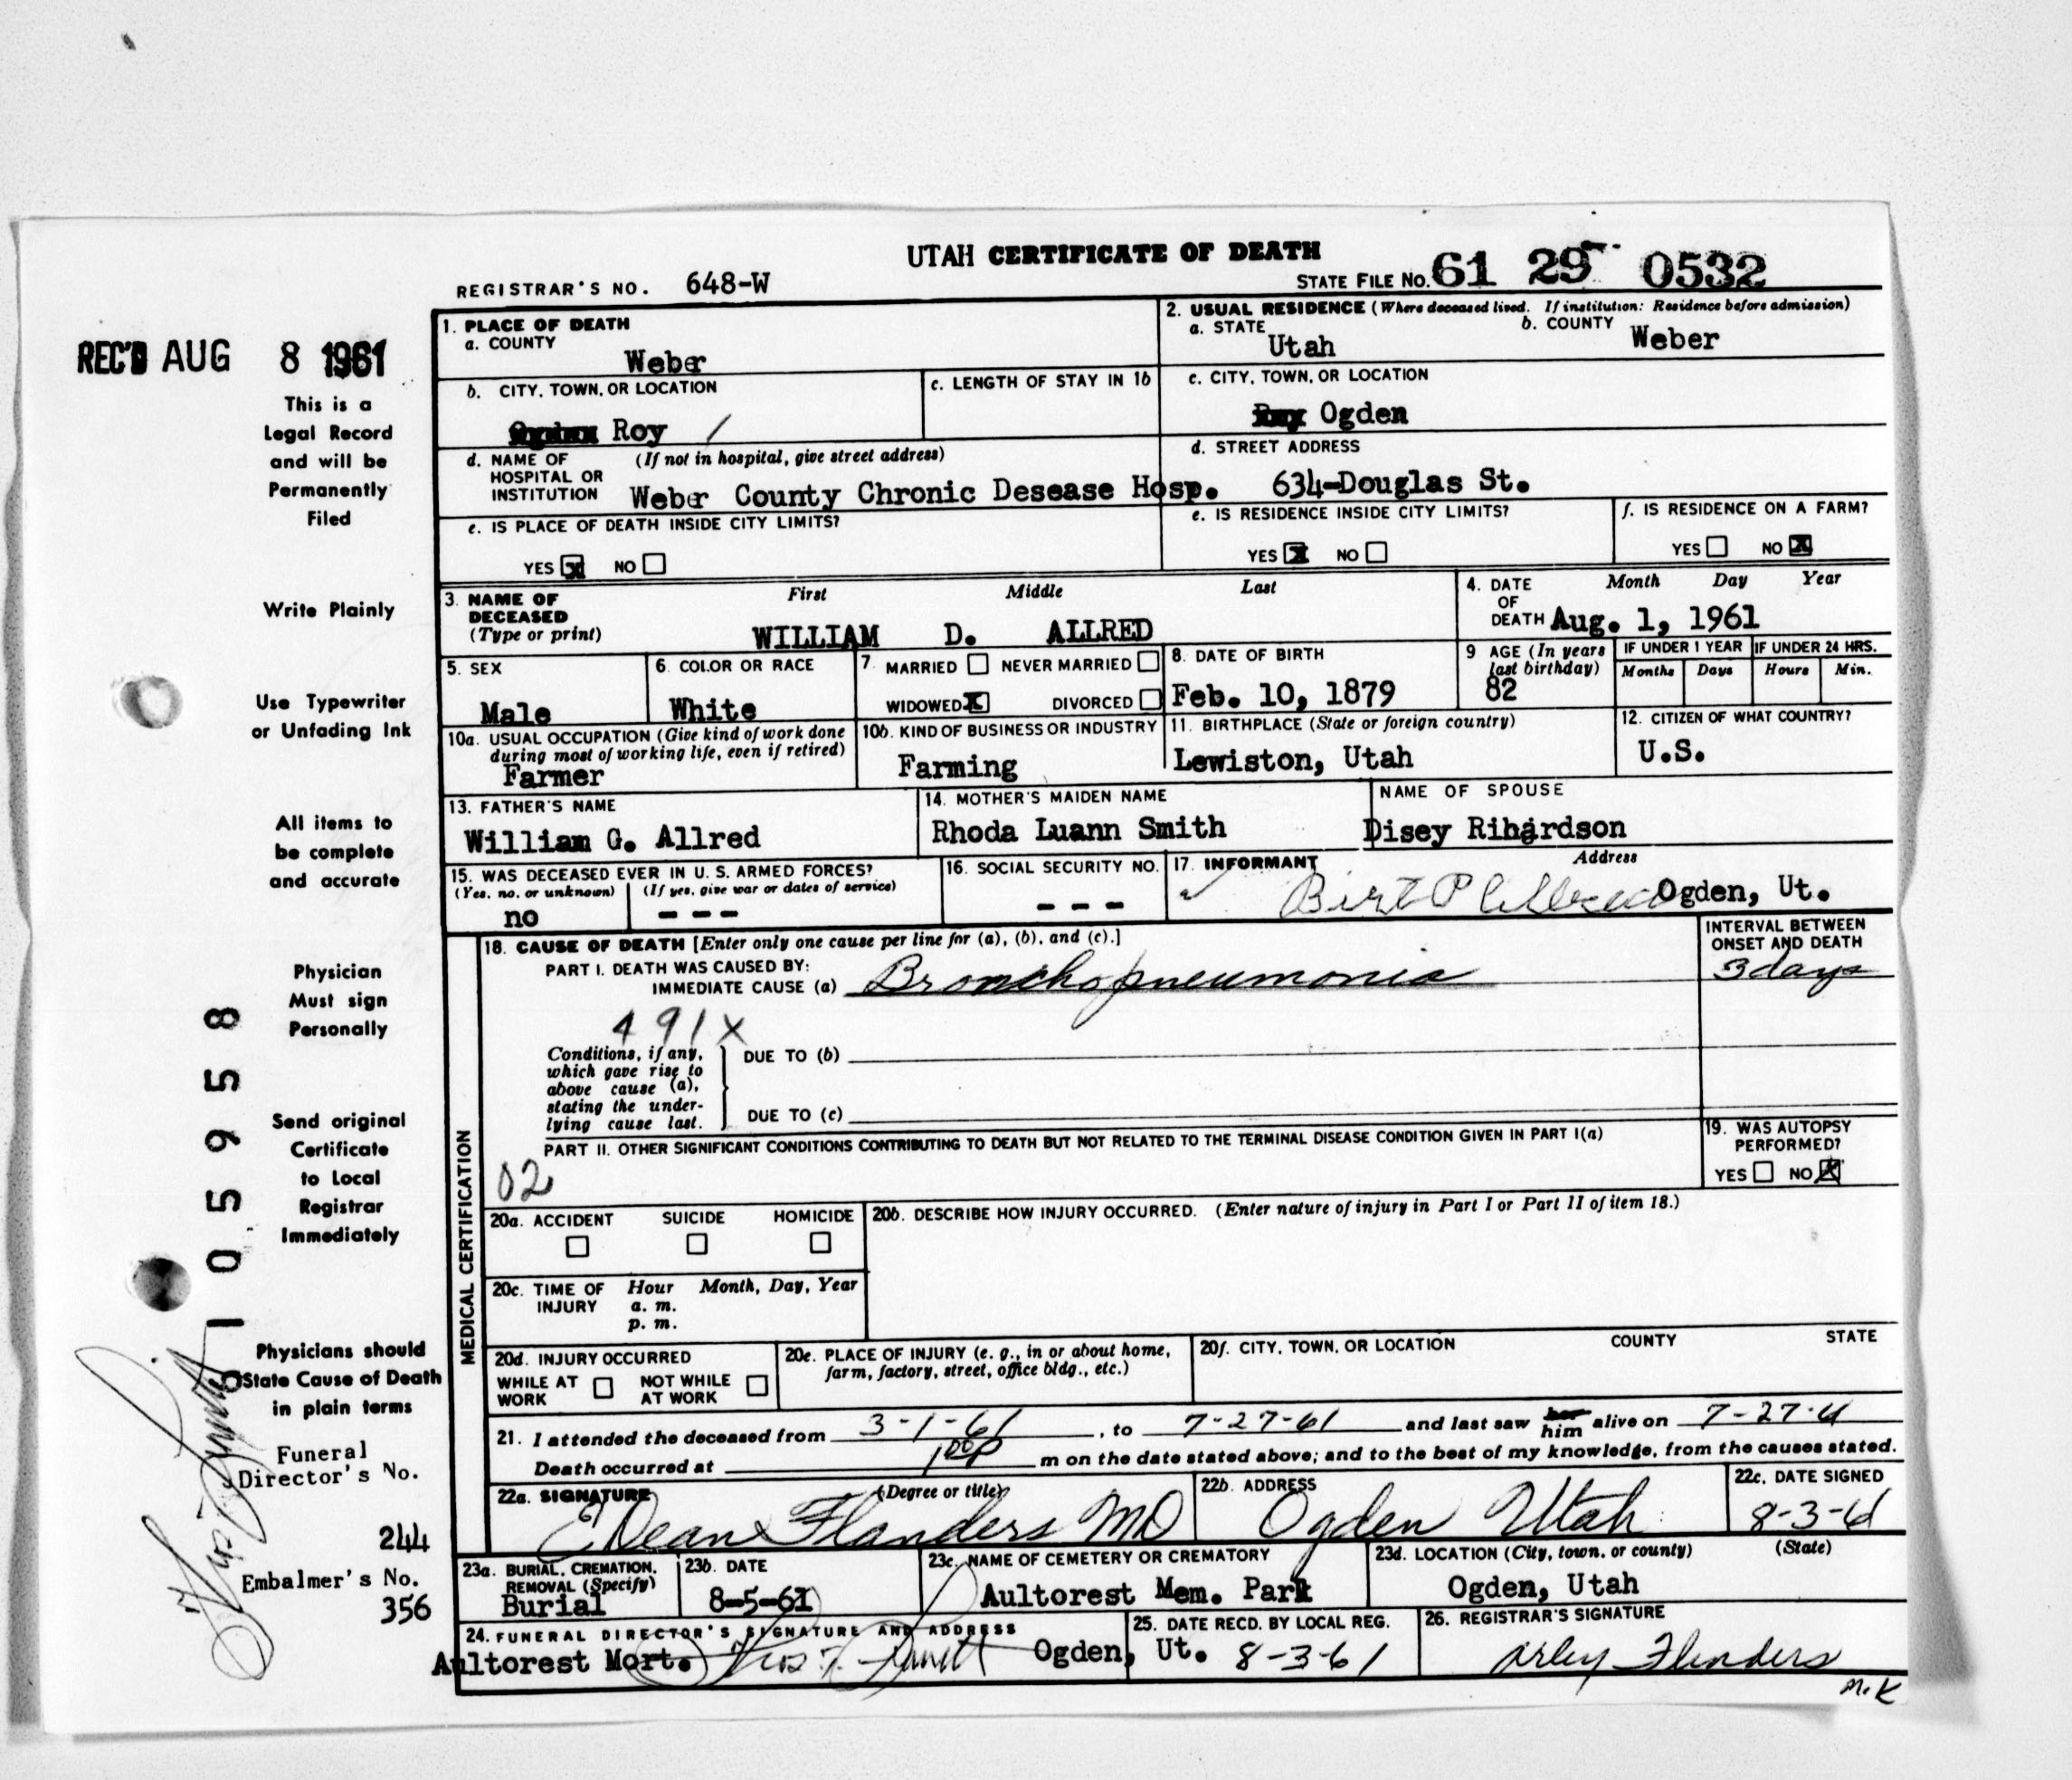 UTAH CERTIFICATE OF DEATH
REGISTRAR'S NO. 648-W
STATE FILE NO. 61 29 0532
REC'D AUG 8 1961
This is a
Legal Record
and will be
Permanently
Filed
Write Plainly
Use Typewriter
or Unfading Ink
All items to
be complete
and accurate
Physician
Must sign
Personally
Send original
Certificate
to Local
Registrar
Immediately
Physicians should
State Cause of Death
in plain terms
Funeral
Director's No.
244
Embalmer's No.
356
1. PLACE OF DEATH
a. COUNTY
Weber
2. USUAL RESIDENCE (Where deceased lived. If institution: Residence before admission)
a. STATE
Utah
b. COUNTY
Weber
b. CITY, TOWN, OR LOCATION
Roy /
c. LENGTH OF STAY IN 1b
c. CITY, TOWN, OR LOCATION
Ogden
d. NAME OF (If not in hospital, give street address)
HOSPITAL OR
INSTITUTION Weber County Chronic Desease Hosp.
d. STREET ADDRESS
634-Douglas St.
e. IS PLACE OF DEATH INSIDE CITY LIMITS?
YES X NO
e. IS RESIDENCE INSIDE CITY LIMITS?
YES X NO
f. IS RESIDENCE ON A FARM?
YES NO X
3. NAME OF
DECEASED
(Type or print)
First Middle Last
WILLIAM D. ALLRED
4. DATE
OF
DEATH
Month Day Year
Aug. 1, 1961
5. SEX
Male
6. COLOR OR RACE
White
7. MARRIED NEVER MARRIED
WIDOWED X DIVORCED
8. DATE OF BIRTH
Feb. 10, 1879
9 AGE (In years
last birthday)
82
IF UNDER 1 YEAR
Months Days
IF UNDER 24 HRS.
Hours Min.
10a. USUAL OCCUPATION (Give kind of work done
during most of working life, even if retired)
Farmer
10b. KIND OF BUSINESS OR INDUSTRY
Farming
11. BIRTHPLACE (State or foreign country)
Lewiston, Utah
12. CITIZEN OF WHAT COUNTRY?
U.S.
13. FATHER'S NAME
William G. Allred
14. MOTHER'S MAIDEN NAME
Rhoda Luann Smith
NAME OF SPOUSE
Disey Rihardson
15. WAS DECEASED EVER IN U. S. ARMED FORCES?
(Yes, no, or unknown) (If yes, give war or dates of service)
no - - -
16. SOCIAL SECURITY NO.
- - -
17. INFORMANT Address
Birt P Allred Ogden, Ut.
MEDICAL CERTIFICATION
18. CAUSE OF DEATH [Enter only one cause per line for (a), (b), and (c).]
PART I. DEATH WAS CAUSED BY:
IMMEDIATE CAUSE (a) Bronchopneumonia
INTERVAL BETWEEN
ONSET AND DEATH
3 days
491X
Conditions, if any,
which gave rise to
above cause (a),
stating the under-
lying cause last.
DUE TO (b)
DUE TO (c)
PART II. OTHER SIGNIFICANT CONDITIONS CONTRIBUTING TO DEATH BUT NOT RELATED TO THE TERMINAL DISEASE CONDITION GIVEN IN PART I(a)
02
19. WAS AUTOPSY
PERFORMED?
YES NO X
20a. ACCIDENT SUICIDE HOMICIDE
20b. DESCRIBE HOW INJURY OCCURRED. (Enter nature of injury in Part I or Part II of item 18.)
20c. TIME OF Hour Month, Day, Year
INJURY a. m.
p. m.
20d. INJURY OCCURRED
WHILE AT NOT WHILE
WORK AT WORK
20e. PLACE OF INJURY (e. g., in or about home,
farm, factory, street, office bldg., etc.)
20f. CITY, TOWN, OR LOCATION COUNTY STATE
21. I attended the deceased from 3-1-61, to 7-27-61 and last saw her him alive on 7-27-61
Death occurred at 100p m on the date stated above; and to the best of my knowledge, from the causes stated.
22a. SIGNATURE (Degree or title)
E Dean Flanders MD
22b. ADDRESS
Ogden Utah
22c. DATE SIGNED
8-3-61
23a. BURIAL, CREMATION,
REMOVAL (Specify)
Burial
23b. DATE
8-5-61
23c. NAME OF CEMETERY OR CREMATORY
Aultorest Mem. Park
23d. LOCATION (City, town, or county) (State)
Ogden, Utah
24. FUNERAL DIRECTOR'S SIGNATURE AND ADDRESS
Aultorest Mort. Ogden, Ut.
25. DATE RECD. BY LOCAL REG.
8-3-61
26. REGISTRAR'S SIGNATURE
Arley Flinders
M.K